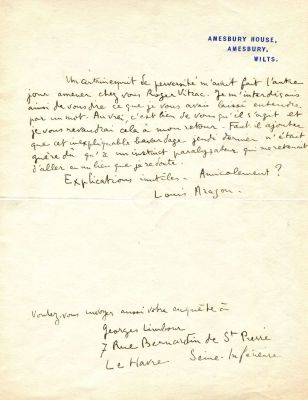 AMESBURY HOUSE,
AMESBURY,
WILTS.
Un certain esprit de perversité m'avait fait l'autre
jour amener chez vous Roger Vitrac. Je m'interdisais
ainsi de vous dire ce que je vous avais laissé entendre
par un mot. Au vrai, c'est bien de vous qu'il s'agit et
je vous revaudrai cela à mon retour. Faut-il ajouter
que cet inexplicable bavardage jeudi dernier n'était
guère dû qu'à un instinct paralysateur qui me retenait
d'aller en un lieu que je redoute
Explications inutiles. Amicalement?
Louis Aragon.
Voulez-vous envoyer aussi votre enquête à
Georges Limbour
7 Rue Bernardin de St Pierre
Le Havre Seine-Inférieure